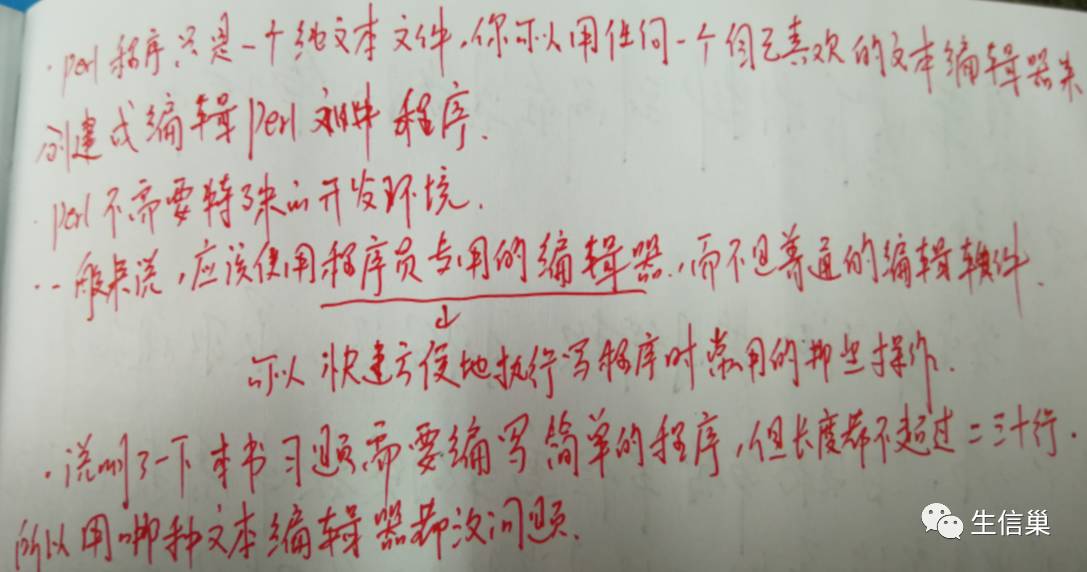 ·perl程序只是一个纯文本文件,你可以用任何一个自己喜欢的文本编辑器来
创建或编辑perl 程序.
·perl不需要特殊的开发环境.
·一般来说,应该使用程序员专用的编辑器,而不是普通的编辑软件.
可以快速方便地执行写程序时常用的那些操作.
·说明了一下本书习题需要编写简单的程序,但长度都不超过二三十行.
所以用哪种文本编辑器都没问题.
生信巢